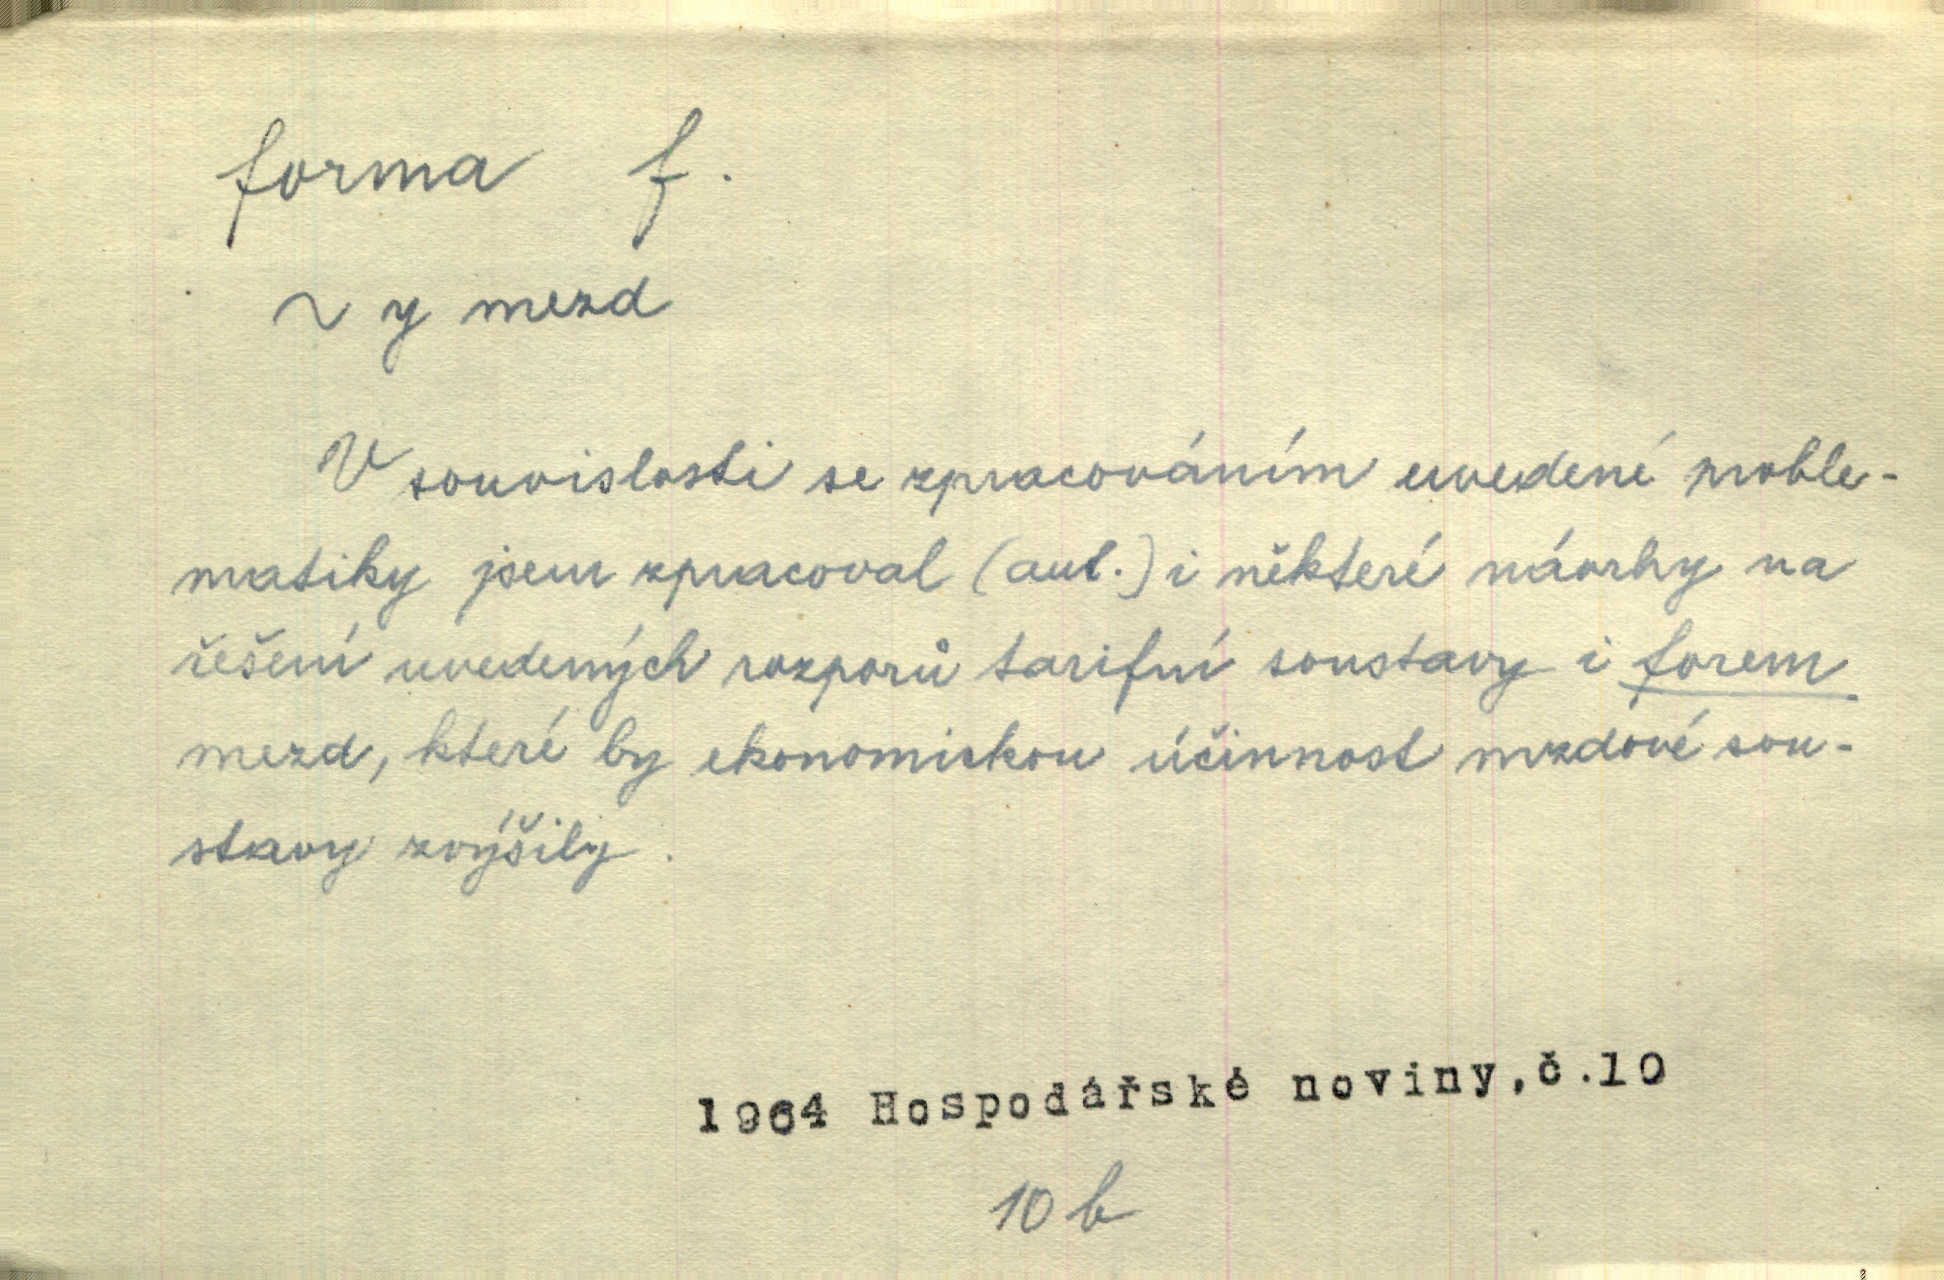 forma f.
~ y mezd
V souvislosti se zpracováním uvedené proble-
matiky jsem zpracoval (aut.) i některé návrhy na
řešení uvedených rozporů tarifní soustavy i forem
mezd, které by ekonomickou účinnost mzdové sou-
stavy zvýšily.
1964 Hospodářské noviny, č.10
10 b